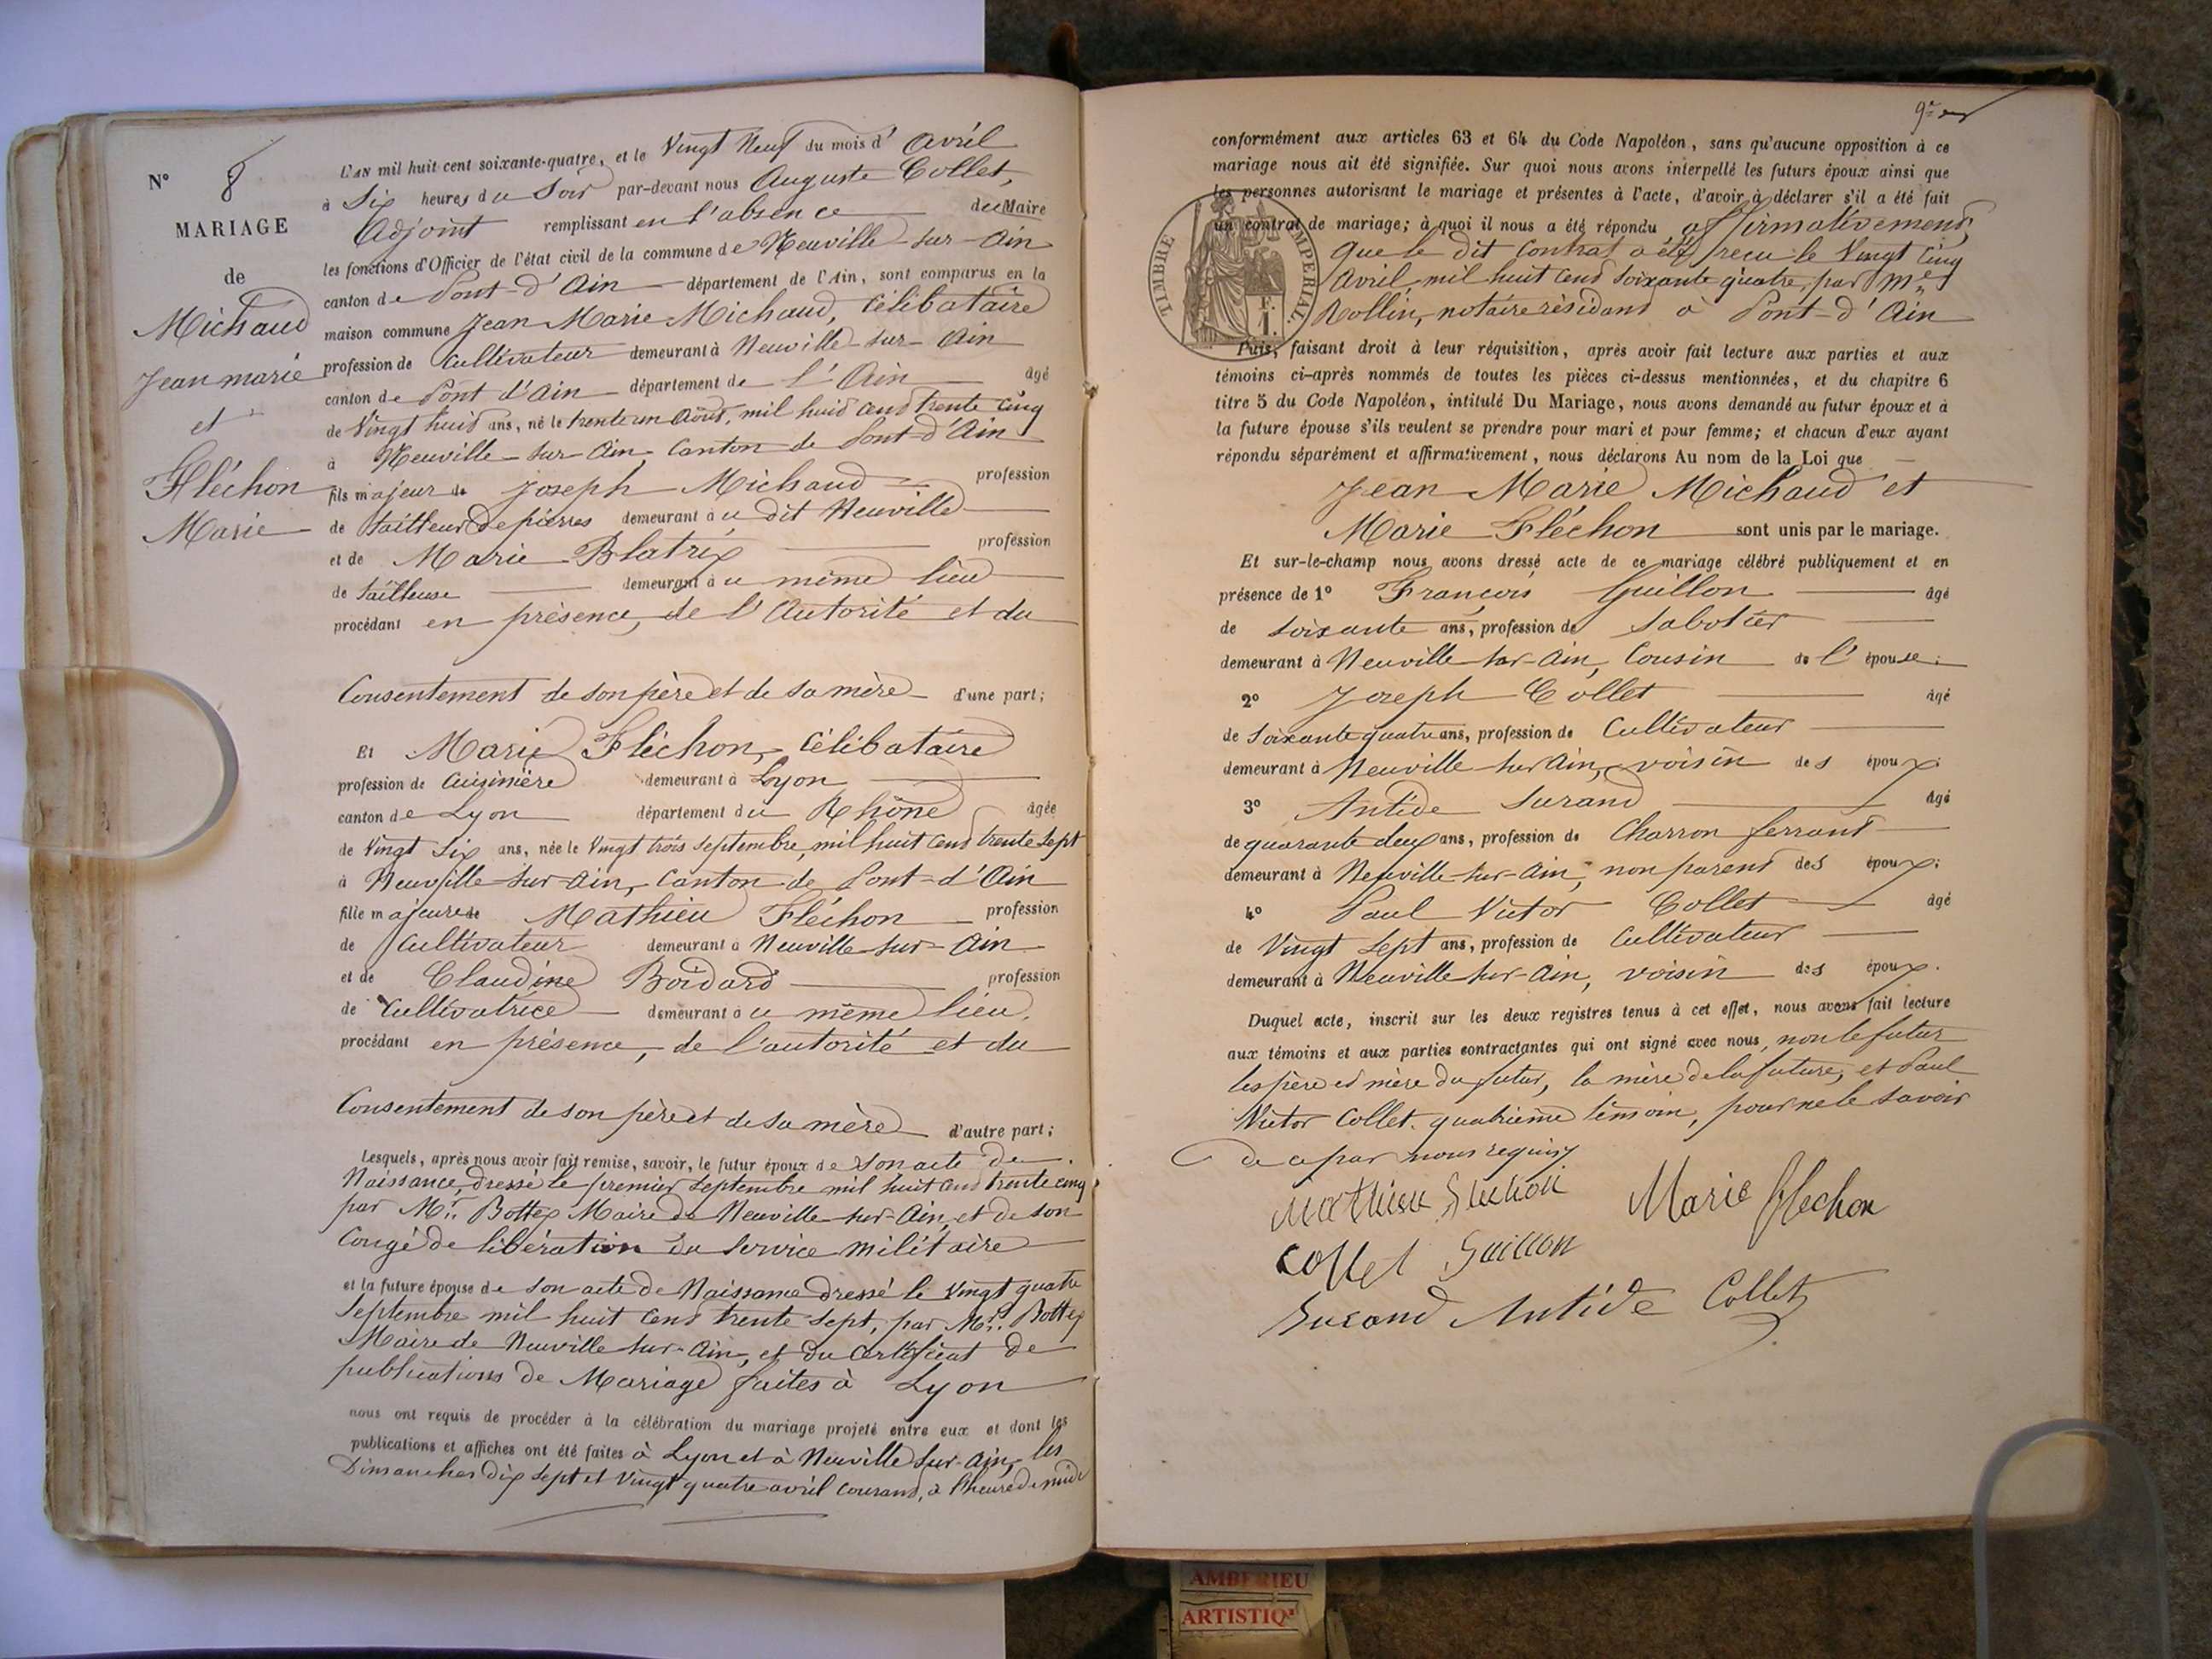 N° 8
MARIAGE
de
Michaud
Jean marie
et
Fléchon
Marie
L'AN mil huit cent soixante-quatre, et le Vingt Neuf du mois d' Avril
à Six heures du Soir par-devant nous Auguste Collet,
Adjoint remplissant en l'absence du Maire
les fonctions d'Officier de l'état civil de la commune de Neuville-sur-Ain
canton de Pont-d'Ain département de l'Ain, sont comparus en la
maison commune Jean Marie Michaud, Célibataire
profession de Cultivateur demeurant à Neuville-sur-Ain
canton de Pont d'Ain département de l'Ain âgé
de Vingt huit ans, né le trente un Août, mil huit cent trente cinq
à Neuville-sur-Ain Canton de Pont-d'Ain
fils majeur de Joseph Michaud profession
de tailleur de pierres demeurant au dit Neuville
et de Marie Blatrix profession
de tailleuse demeurant au même lieu
procédant en présence, de l'Autorité et du
Consentement de son père et de sa mère d'une part;
Et Marie Fléchon, Célibataire
profession de Cuisinière demeurant à Lyon
canton de Lyon département du Rhône âgée
de Vingt Six ans, née le Vingt trois Septembre, mil huit cent trente sept
à Neuville-sur-Ain, Canton de Pont-d'Ain
fille majeure de Mathieu Fléchon profession
de Cultivateur demeurant à Neuville-sur-Ain
et de Claudine Boidard profession
de Cultivatrice demeurant au même lieu,
procédant en présence, de l'autorité et du
Consentement de son père et de sa mère d'autre part;
Lesquels, après nous avoir fait remise, savoir, le futur époux de Son acte de
Naissance, dressé le premier Septembre mil huit cent trente cinq
par Mr. Bottex Maire de Neuville-sur-Ain, et de son
Congé de libération du Service militaire
et la future épouse de son acte de Naissance dressé le Vingt quatre
Septembre mil huit cent trente sept, par Mr. Bottex
Maire de Neuville-sur-Ain, et du Certificat de
publications de Mariage faites à Lyon
nous ont requis de procéder à la célébration du mariage projeté entre eux et dont les
publications et affiches ont été faites à Lyon et à Neuville-sur-Ain, les
Dimanches dix sept et Vingt quatre avril courant, à l'heure de midi
conformément aux articles 63 et 64 du Code Napoléon, sans qu'aucune opposition à ce
mariage nous ait été signifiée. Sur quoi nous avons interpellé les futurs époux ainsi que
les personnes autorisant le mariage et présentes à l'acte, d'avoir à déclarer s'il a été fait
un contrat de mariage; à quoi il nous a été répondu affirmativement,
Que le dit Contrat a été reçu le Vingt Cinq
Avril mil huit cent soixante quatre, par Me
Rollin, notaire résidant à Pont-d'Ain
TIMBRE IMPERIAL
F.
1.
Puis, faisant droit à leur réquisition, après avoir fait lecture aux parties et aux
témoins ci-après nommés de toutes les pièces ci-dessus mentionnées, et du chapitre 6
titre 5 du Code Napoléon, intitulé Du Mariage, nous avons demandé au futur époux et à
la future épouse s'ils veulent se prendre pour mari et pour femme; et chacun d'eux ayant
répondu séparément et affirmativement, nous déclarons Au nom de la Loi que
Jean Marie Michaud et
Marie Fléchon sont unis par le mariage.
Et sur-le-champ nous avons dressé acte de ce mariage célébré publiquement et en
présence de 1° François Guillon âgé
de soixante ans, profession de Sabotier
demeurant à Neuville-sur-Ain, Cousin de l'épouse;
2° Joseph Collet âgé
de Soixante quatre ans, profession de Cultivateur
demeurant à Neuville sur Ain, voisin des époux;
3° Antide Surand âgé
de quarante deux ans, profession de Charron ferrant
demeurant à Neuville-sur-Ain; non parent des époux;
4° Paul Victor Collet âgé
de Vingt Sept ans, profession de Cultivateur
demeurant à Neuville-sur-Ain, voisin des époux.
Duquel acte, inscrit sur les deux registres tenus à cet effet, nous avons fait lecture
aux témoins et aux parties contractantes qui ont signé avec nous, non le futur
les père et mère du futur, la mère de la future, et Paul
Victor Collet, quatrième témoin, pour ne le savoir
de ce par nous requis
Mathieu Flechon Marie flechon
Collet Guillon
Surand Antide Collet
AMBERIEU
ARTISTIQ